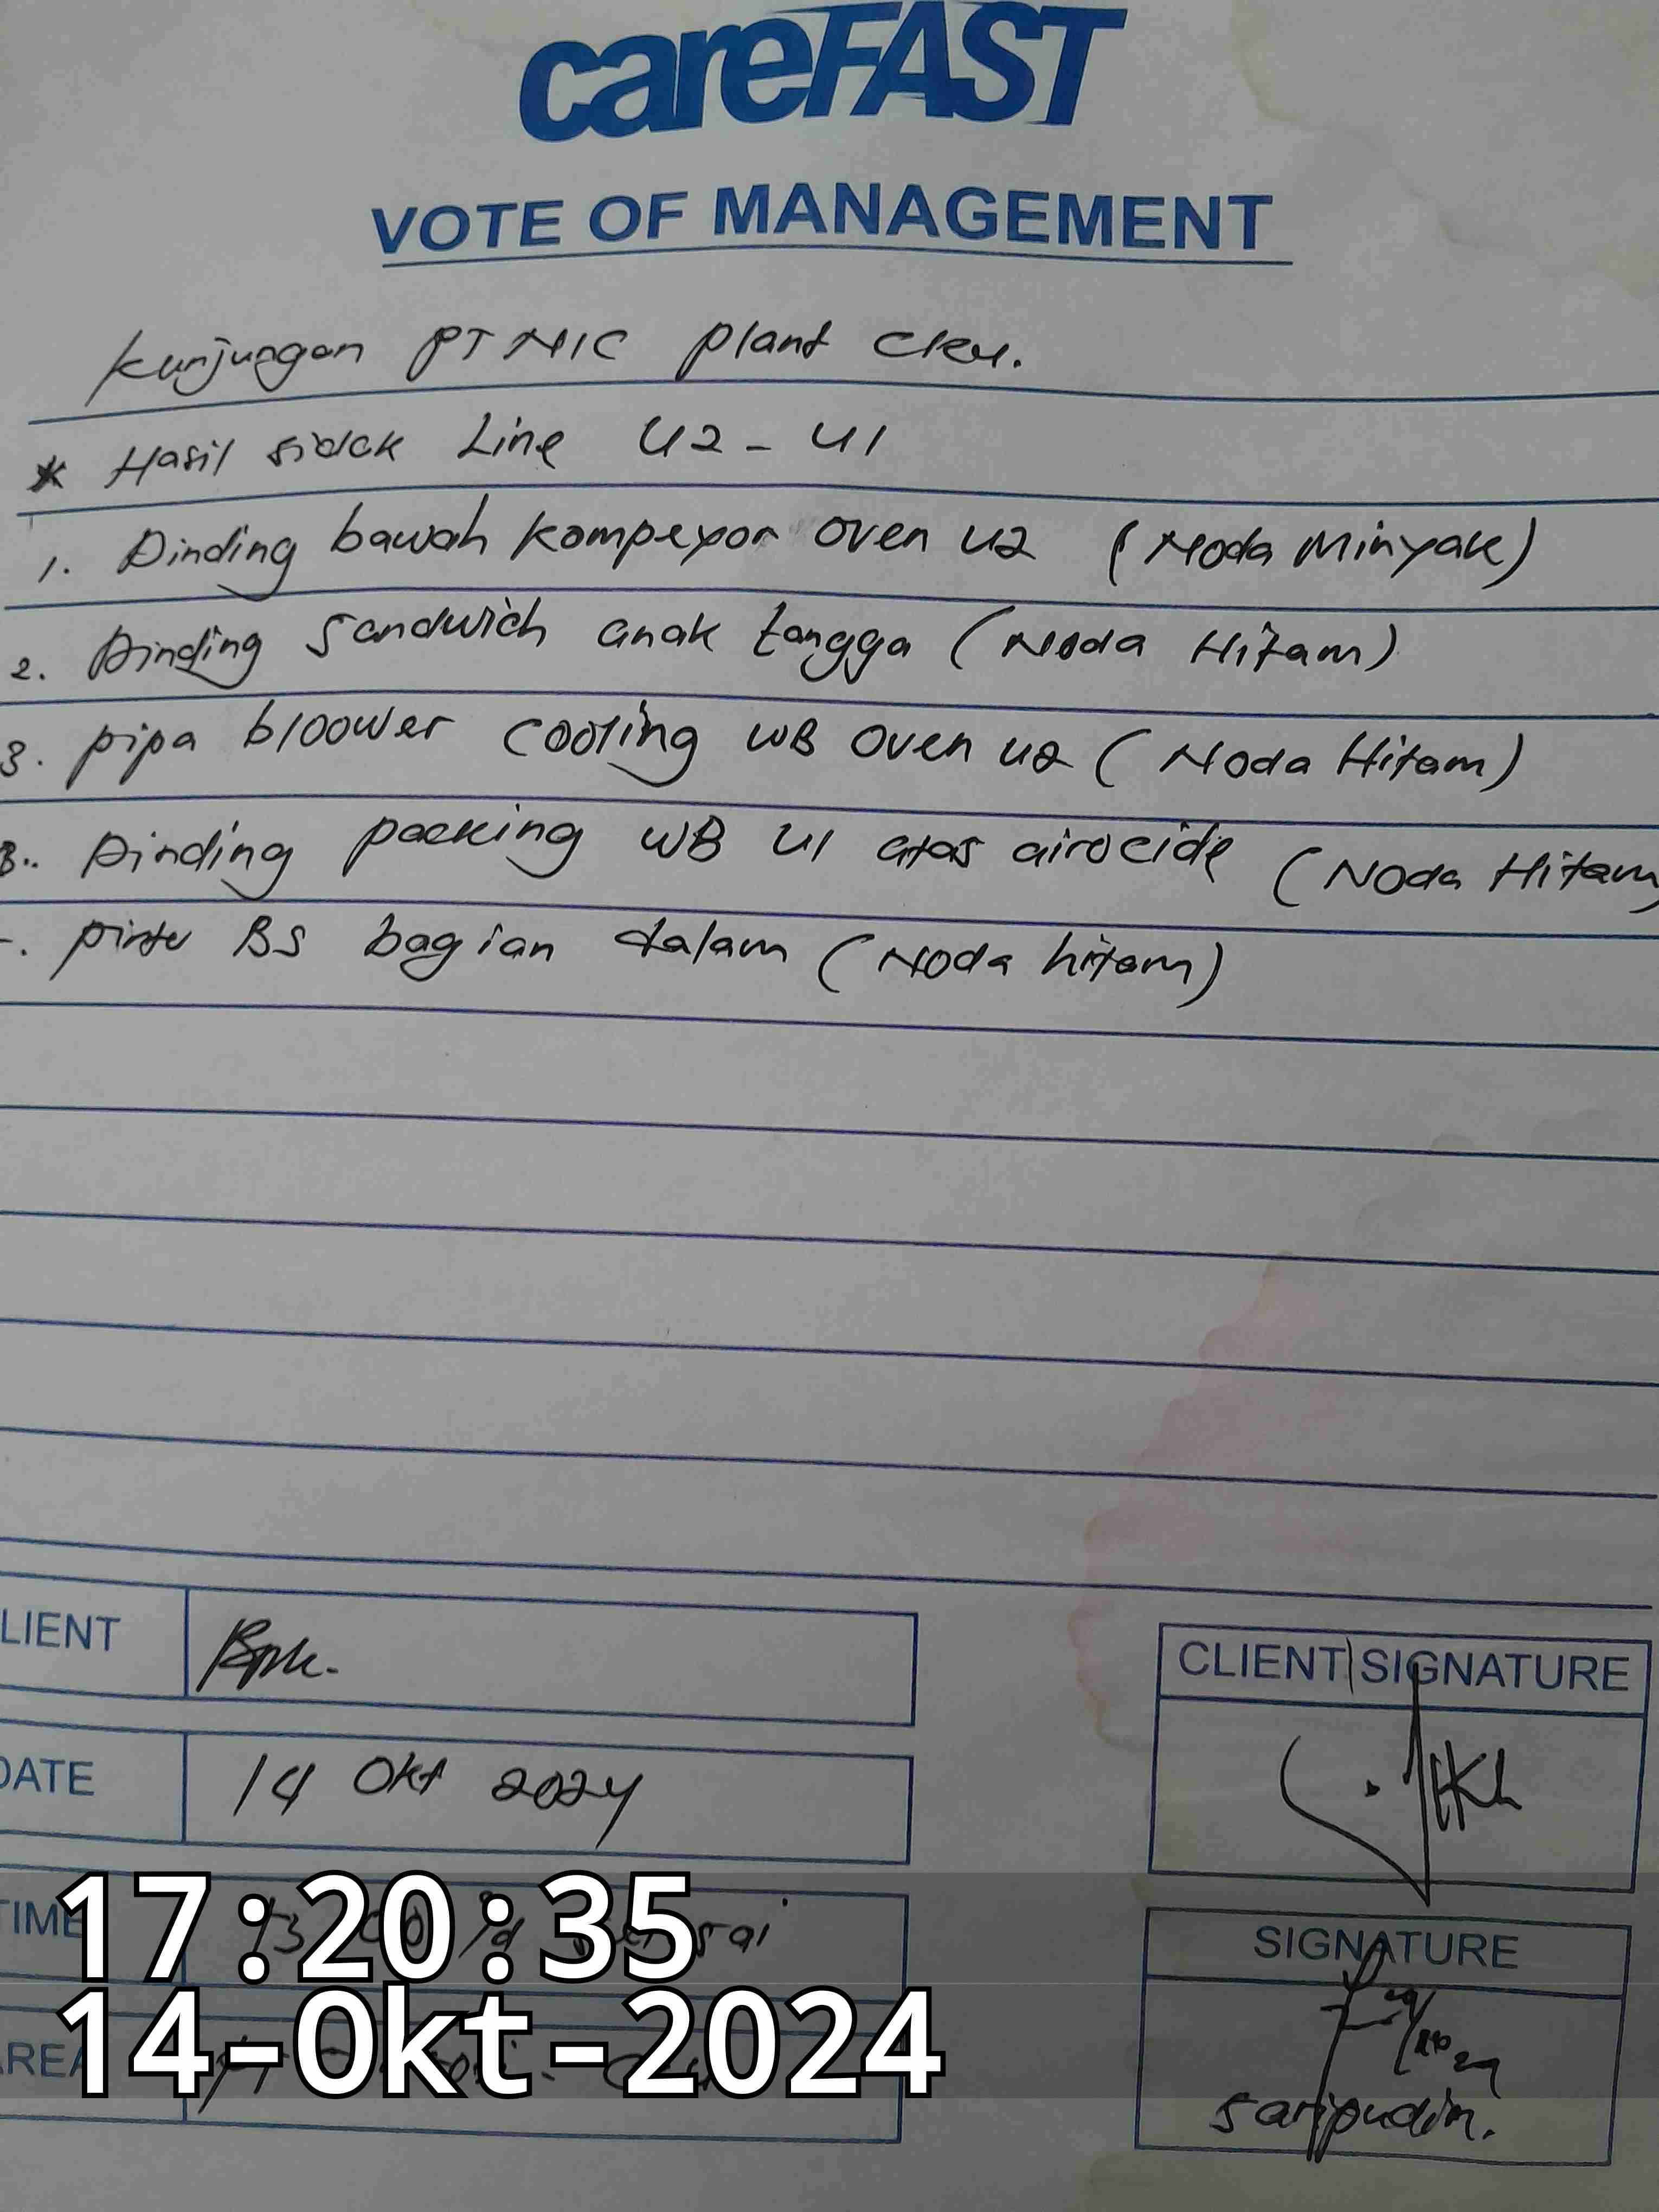 careFAST
VOTE OF MANAGEMENT
Kunjungan PT NIC plant CKU.
* Hasil sidak Line U2 - U1
1. Dinding bawah kompexor oven U2 (Noda Minyak)
2. Dinding Sandwich anak tangga (Noda Hitam)
3. pipa bloower cooling WB Oven U2 (Noda Hitam)
3.. Dinding packing WB U1 atas airocide (Noda Hitam)
-. pintu BS bagian dalam (Noda hitam)
LIENT
Bpk.
CLIENT SIGNATURE
DATE
14 Okt 2024
TIME
SIGNATURE
Saripudin.
AREA
17:20:35
14-Okt-2024